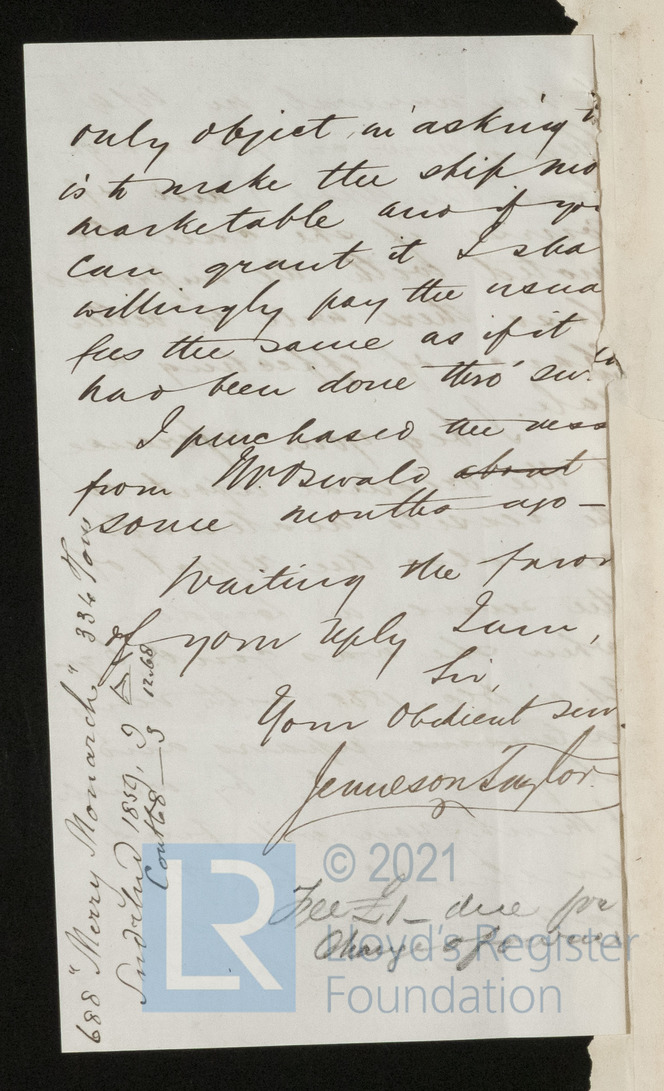 only object in asking
is to make the ship mo
marketable and if yo
can grant it I sha
willingly pay the usua
fees the same as if it
had been done thro'
I purchased the vess
from Mr Oswald about
some months ago —
Waiting the favor
of your reply I am,
Sir,
Your Obedient serv
Jemieson Taylor
Fee £1 — due for
Change of owner
688 "Merry Monarch" 334 Tons
Sndrlnd 1859, 9 A 12.68
Cont 68 — 3
LR
© 2021
Lloyd's Register
Foundation